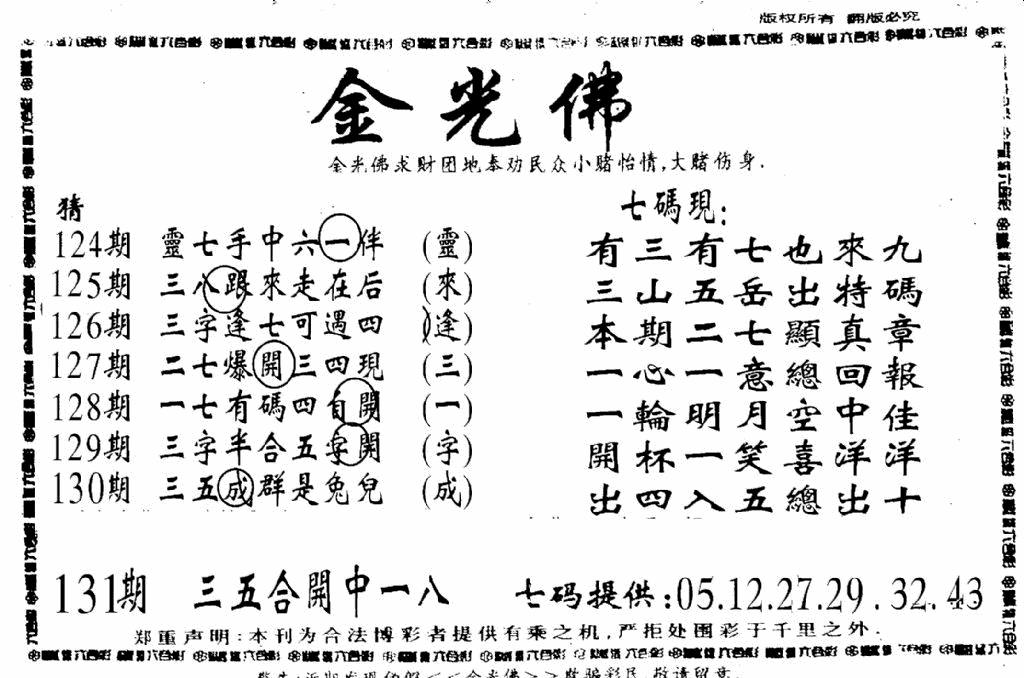 版权所有 翻版必究
金光佛
金光佛求财团地奉劝民众小赌怡情,大赌伤身.
猜
124期 靈七手中六一伴 (靈)
125期 三八跟來走在后 (來)
126期 三字逢七可遇四 (逢)
127期 二七爆開三四現 (三)
128期 一七有碼四自開 (一)
129期 三字半合五字開 (字)
130期 三五成群是兔兒 (成)
七碼現:
有三有七也來九
三山五岳出特碼
本期二七顯真章
一心一意總回報
一輪明月空中佳
開杯一笑喜洋洋
出四入五總出十
131期 三五合開中一八 七码提供:05.12.27.29.32.43
郑重声明:本刊为合法博彩者提供有乘之机,严拒处围彩于千里之外.